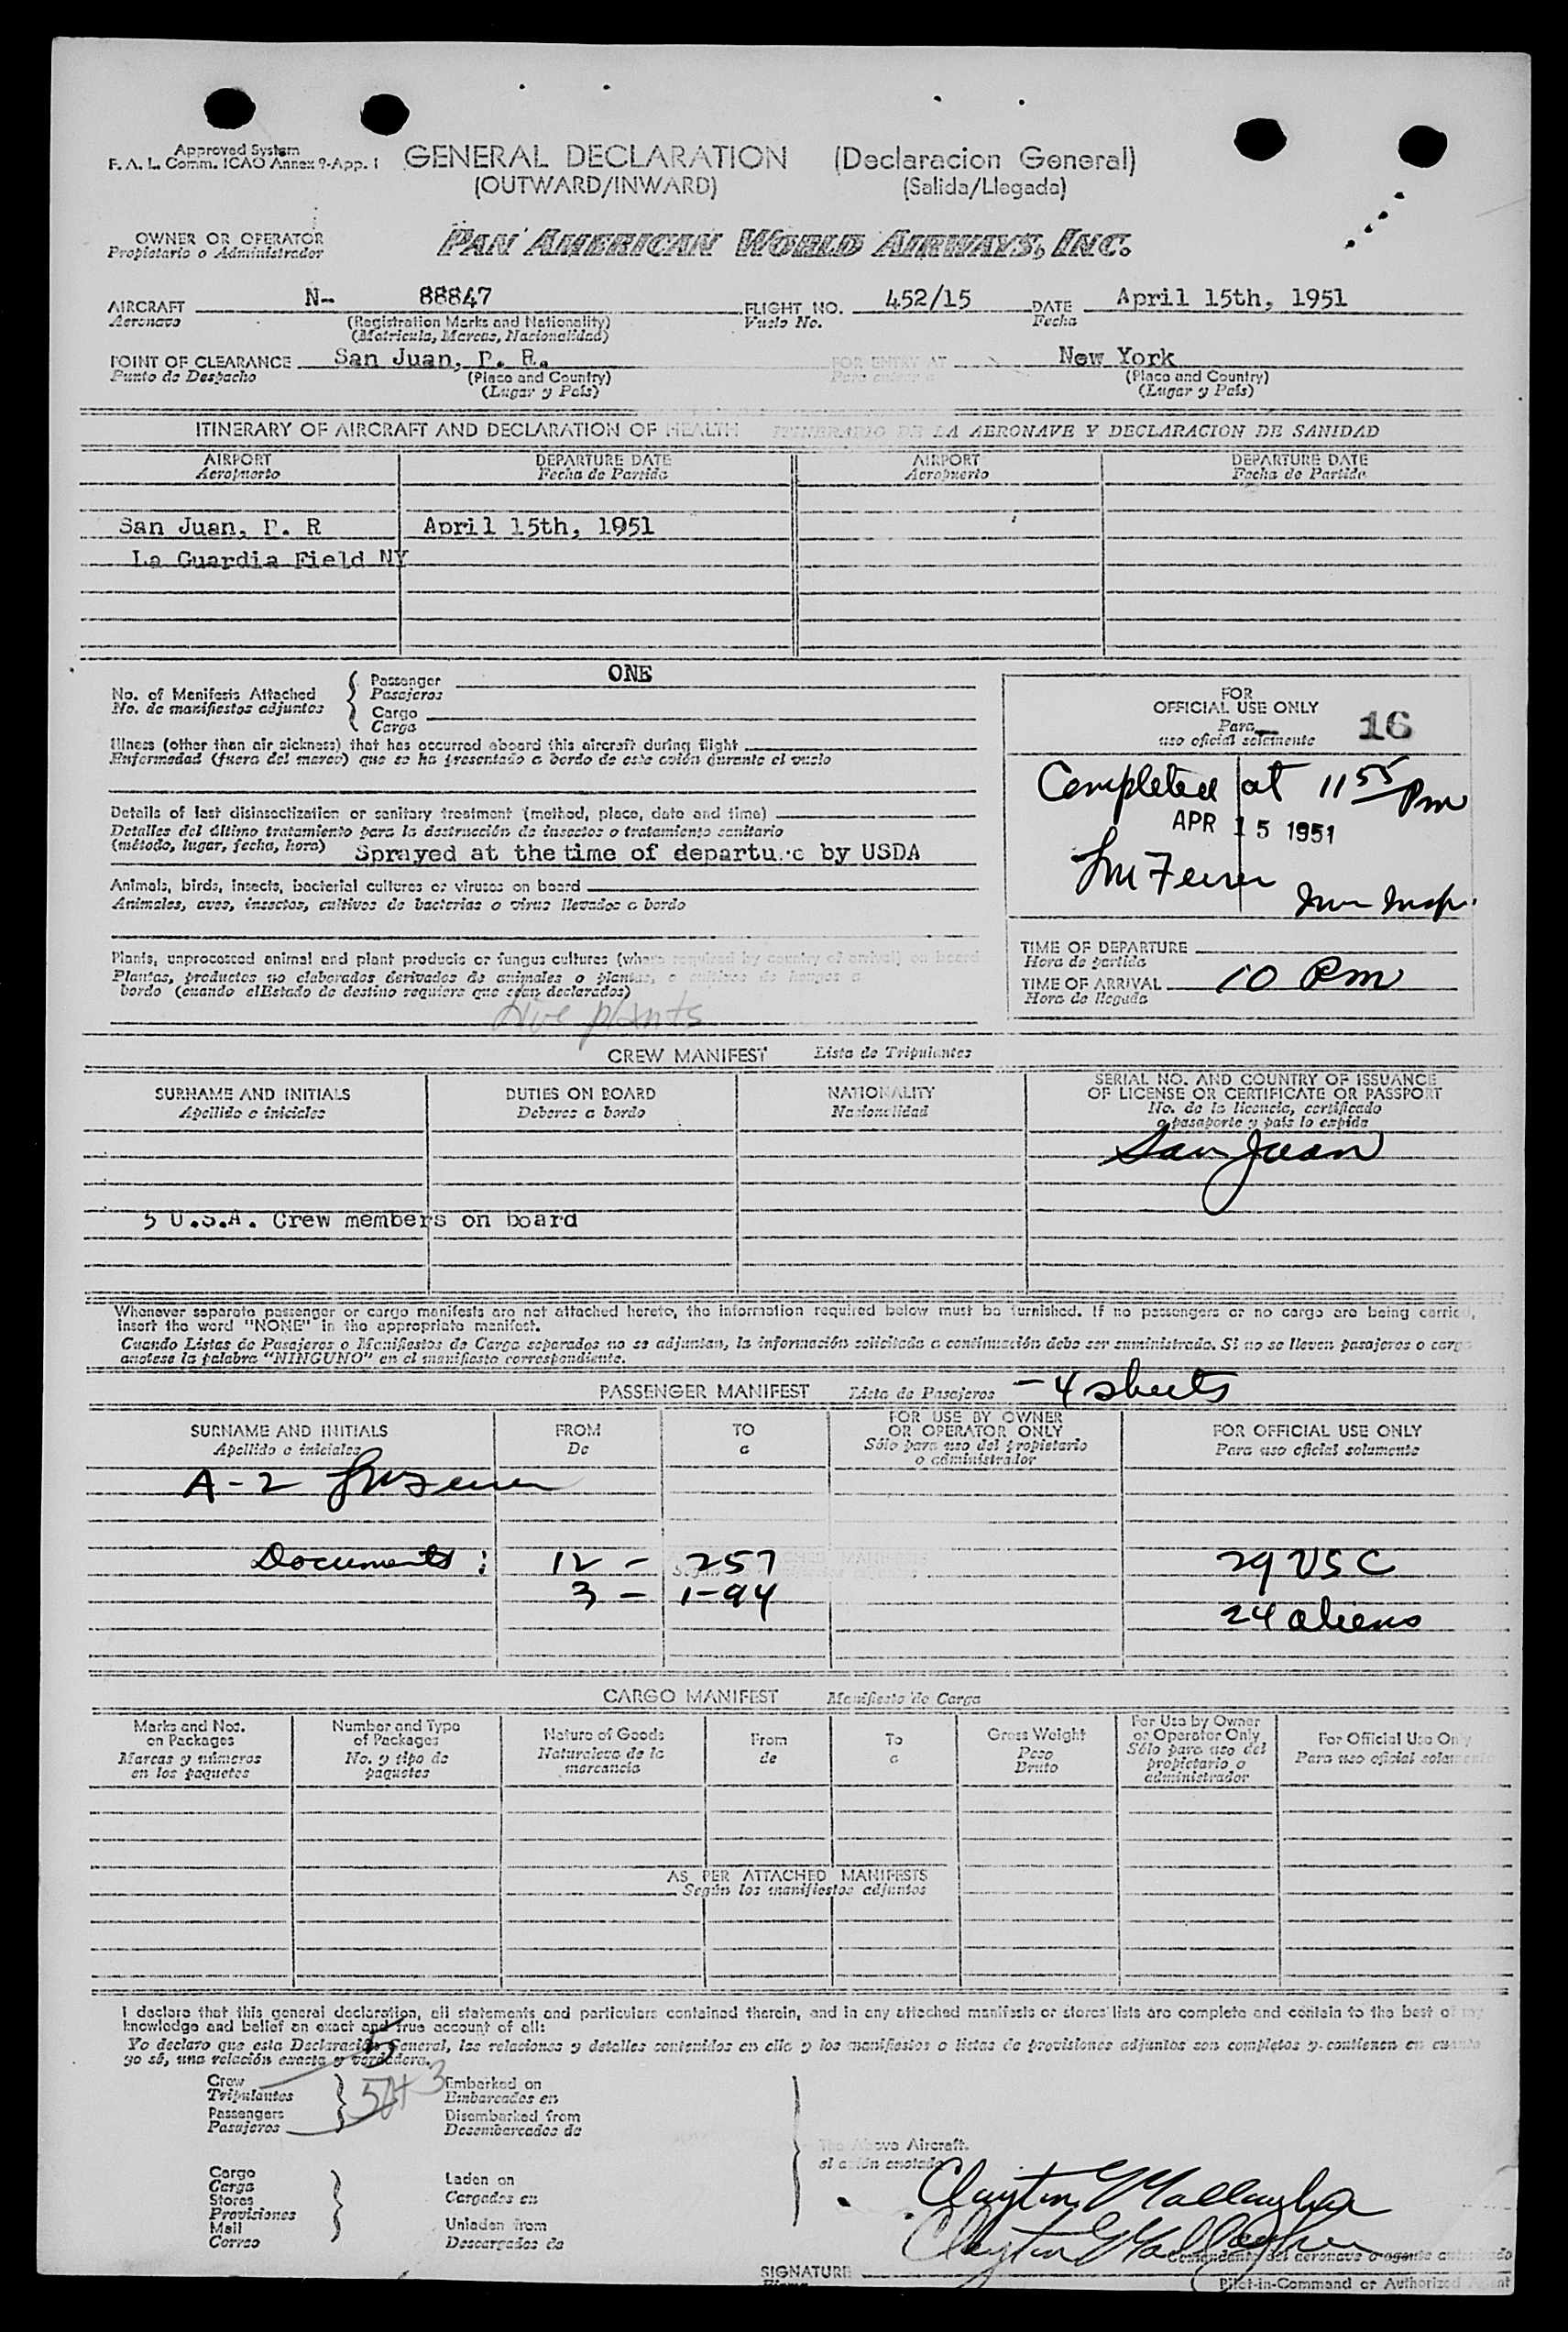 Approved System
F. A. L. Comm. ICAO Annex 9-App. 1
GENERAL DECLARATION (Declaracion General)
(OUTWARD/INWARD) (Salida/Llegada)
OWNER OR OPERATOR
Propietario o Administrador
PAN AMERICAN WORLD AIRWAYS, INC.
AIRCRAFT N- 88847 FLIGHT NO. 452/15 DATE April 15th, 1951
Aeronave (Registration Marks and Nationality) Vuelo No. Fecha
(Matricula, Marcas, Nacionalidad)
POINT OF CLEARANCE San Juan, P. R. FOR ENTRY AT New York
Punto de Despacho (Place and Country) Para entrar a (Place and Country)
(Lugar y País) (Lugar y País)
ITINERARY OF AIRCRAFT AND DECLARATION OF HEALTH ITINERARIO DE LA AERONAVE Y DECLARACION DE SANIDAD
AIRPORT DEPARTURE DATE AIRPORT DEPARTURE DATE
Aeropuerto Fecha de Partida Aeropuerto Fecha de Partida
San Juan, P. R April 15th, 1951
La Guardia Field NY
No. of Manifests Attached
No. de manifiestos adjuntos
Passenger ONE
Pasajeros
Cargo
Carga
Illness (other than air sickness) that has occurred aboard this aircraft during flight
Enfermedad (fuera del mareo) que se ha presentado a bordo de este avión durante el vuelo
Details of last disinsectization or sanitary treatment (method, place, date and time)
Detalles del último tratamiento para la destrucción de insectos o tratamiento sanitario
(método, lugar, fecha, hora) Sprayed at the time of departure by USDA
Animals, birds, insects, bacterial cultures or viruses on board
Animales, aves, insectos, cultivos de bacterias o virus llevados a bordo
Plants, unprocessed animal and plant products or fungus cultures (where required by country of arrival) on board
Plantas, productos no elaborados derivados de animales o plantas, o cultivos de hongos a
bordo (cuando el Estado de destino requiera que sean declarados)
Live plants
FOR
OFFICIAL USE ONLY
Para
uso oficial solamente
16
Completed at 11 55 Pm
APR 15 1951
Imm Insp.
TIME OF DEPARTURE
Hora de partida
TIME OF ARRIVAL 10 Pm
Hora de llegada
CREW MANIFEST Lista de Tripulantes
SURNAME AND INITIALS DUTIES ON BOARD NATIONALITY SERIAL NO. AND COUNTRY OF ISSUANCE
OF LICENSE OR CERTIFICATE OR PASSPORT
Apellido e iniciales Deberes a bordo Nacionalidad No. de la licencia, certificado
o pasaporte y país lo expide
San Juan
5 U.S.A. Crew members on board
Whenever separate passenger or cargo manifests are not attached hereto, the information required below must be furnished. If no passengers or no cargo are being carried,
insert the word "NONE" in the appropriate manifest.
Cuando Listas de Pasajeros o Manifiestos de Carga separados no se adjuntan, la información solicitada a continuación debe ser suministrada. Si no se llevan pasajeros o carga
anotese la palabra "NINGUNO" en el manifiesto correspondiente.
PASSENGER MANIFEST Lista de Pasajeros - 4 sheets
SURNAME AND INITIALS FROM TO FOR USE BY OWNER
OR OPERATOR ONLY FOR OFFICIAL USE ONLY
Apellido e iniciales De a Sólo para uso del propietario
o administrador Para uso oficial solamente
A-2
Documents: 12 - 257 29 USC
3 - 1-94 24 aliens
CARGO MANIFEST Manifiesto de Carga
Marks and Nos.
on Packages
Marcas y números
en los paquetes
Number and Type
of Packages
No. y tipo de
paquetes
Nature of Goods
Naturaleza de la
mercancia
From
de
To
a
Gross Weight
Peso
Bruto
For Use by Owner
or Operator Only
Sólo para uso del
propietario o
administrador
For Official Use Only
Para uso oficial solamente
AS PER ATTACHED MANIFESTS
Según los manifiestos adjuntos
I declare that this general declaration, all statements and particulars contained therein, and in any attached manifests or stores lists are complete and contain to the best of my
knowledge and belief an exact and true account of all:
Yo declaro que esta Declaración General, las relaciones y detalles contenidos en ella y los manifiestos o listas de provisiones adjuntos son completos y contienen en cuanto
yo sé, una relación exacta y verdadera.
5
Crew
Tripulantes
Passengers
Pasajeros
Embarked on
Embarcados en
Disembarked from
Desembarcados de
Cargo
Carga
Stores
Provisiones
Mail
Correo
Laden on
Cargados en
Unladen from
Descargados de
The Above Aircraft.
el avión anotado
Clayton G Mallagher
Clayton G Mallagher
Comandante del aeronave o agente autorizado
SIGNATURE
Firma
Pilot-in-Command or Authorized Agent